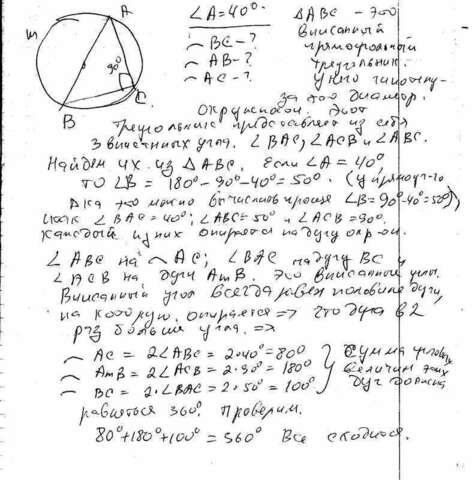 ∠A=40° △ABC – это
m A вписанный
⌒BC-? прямоугольный
90° ⌒AB-? треугольник.
⌒AC-? у него гипотену-
B C за это диаметр.
окружности. Этот
треугольник представляет из себя
3 вписанных угла. ∠BAC; ∠ACB и ∠ABC.
Найдем их из △ABC. Если ∠A=40°,
то ∠B = 180°-90°-40°=50°. (у прямоуг-го
△ка это можно вычислить проще ∠B=90°-40°=50°),
Итак ∠BAC=40°; ∠ABC=50° и ∠ACB=90°.
Каждый из них опирается на дугу окр-ти.
∠ABC на ⌒AC; ∠BAC на дугу BC и
∠ACB на дуги AmB. Это вписанные углы.
Вписанный угол всегда равен половине дуги,
на которую опирается => что дуга в 2
раза больше угла. =>
⌒AC = 2∠ABC = 2·40°=80° Сумма угловых
⌒AmB = 2∠ACB = 2·90°=180° величин этих
⌒BC = 2·∠BAC = 2·50°=100° дуг должна
равняться 360°. Проверим.
80°+180°+100°=360° Все сходится.